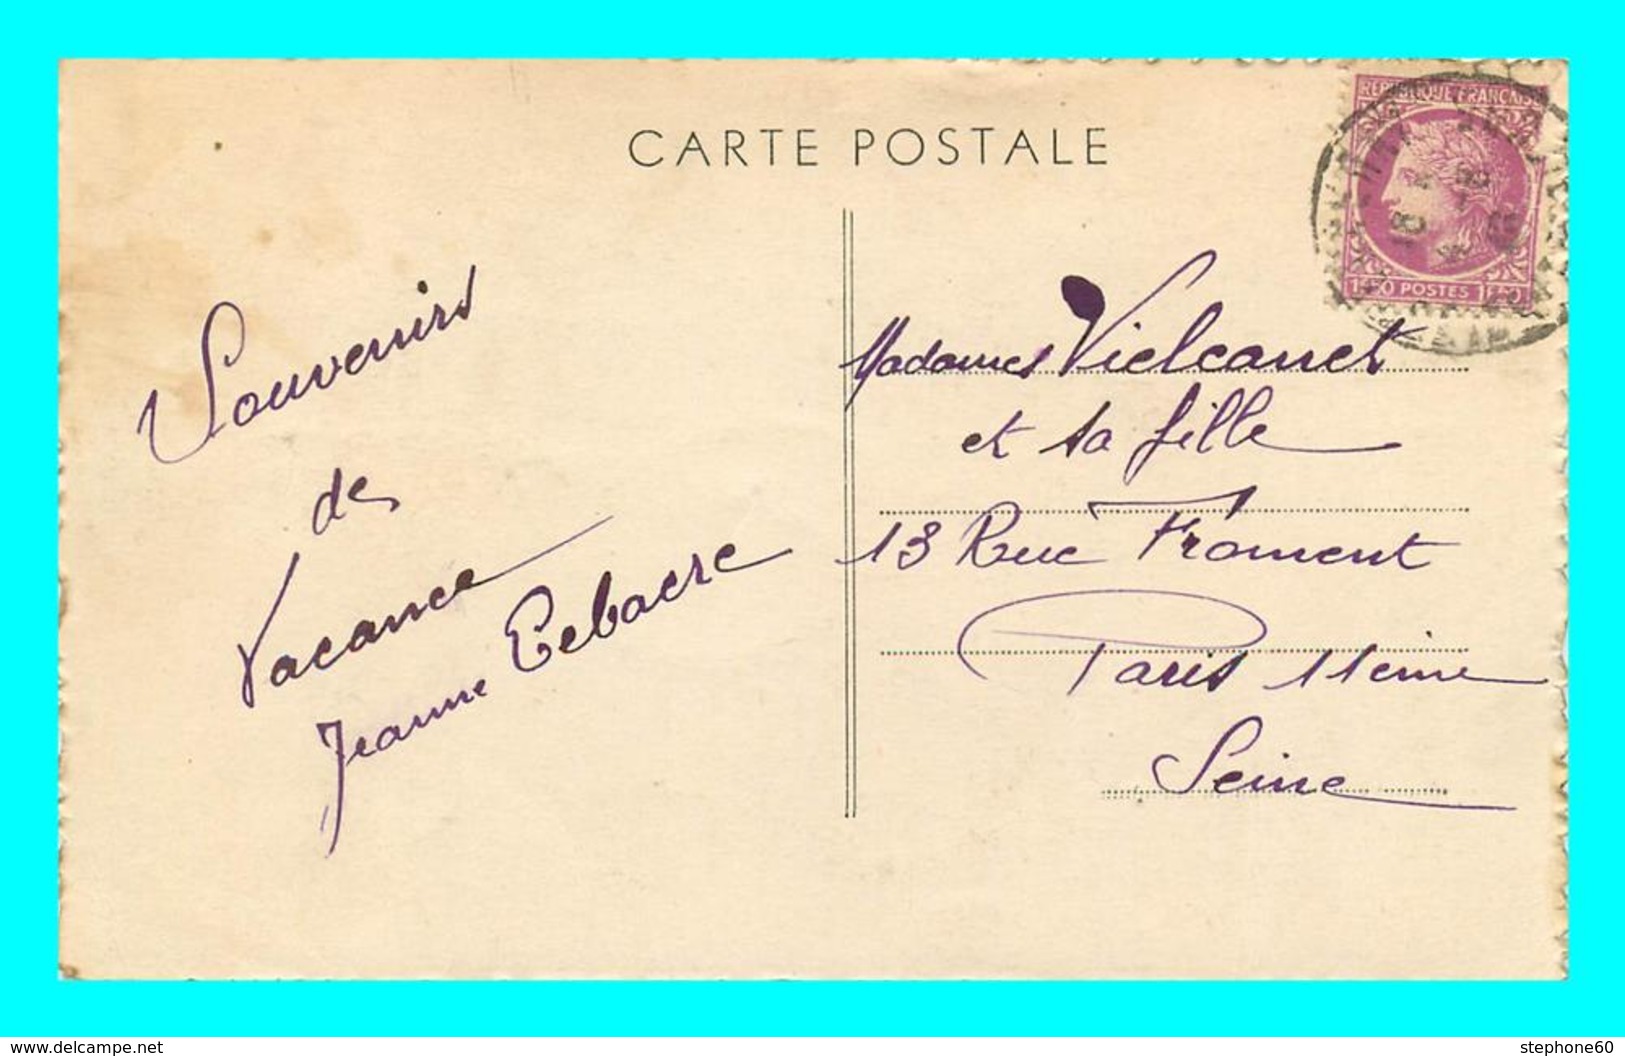 CARTE POSTALE
REPUBLIQUE FRANÇAISE
1F50 POSTES 1F50
Souvenirs
de
Vacance
Jeanne
Madames
et sa fille
13 Rue Froment
Paris 11eme
Seine
delcampe.net
stephone60